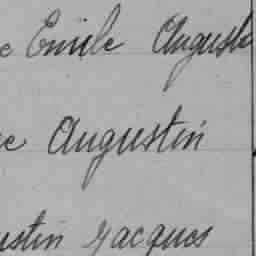 Emile Auguste
Augustin
ustin Jacques